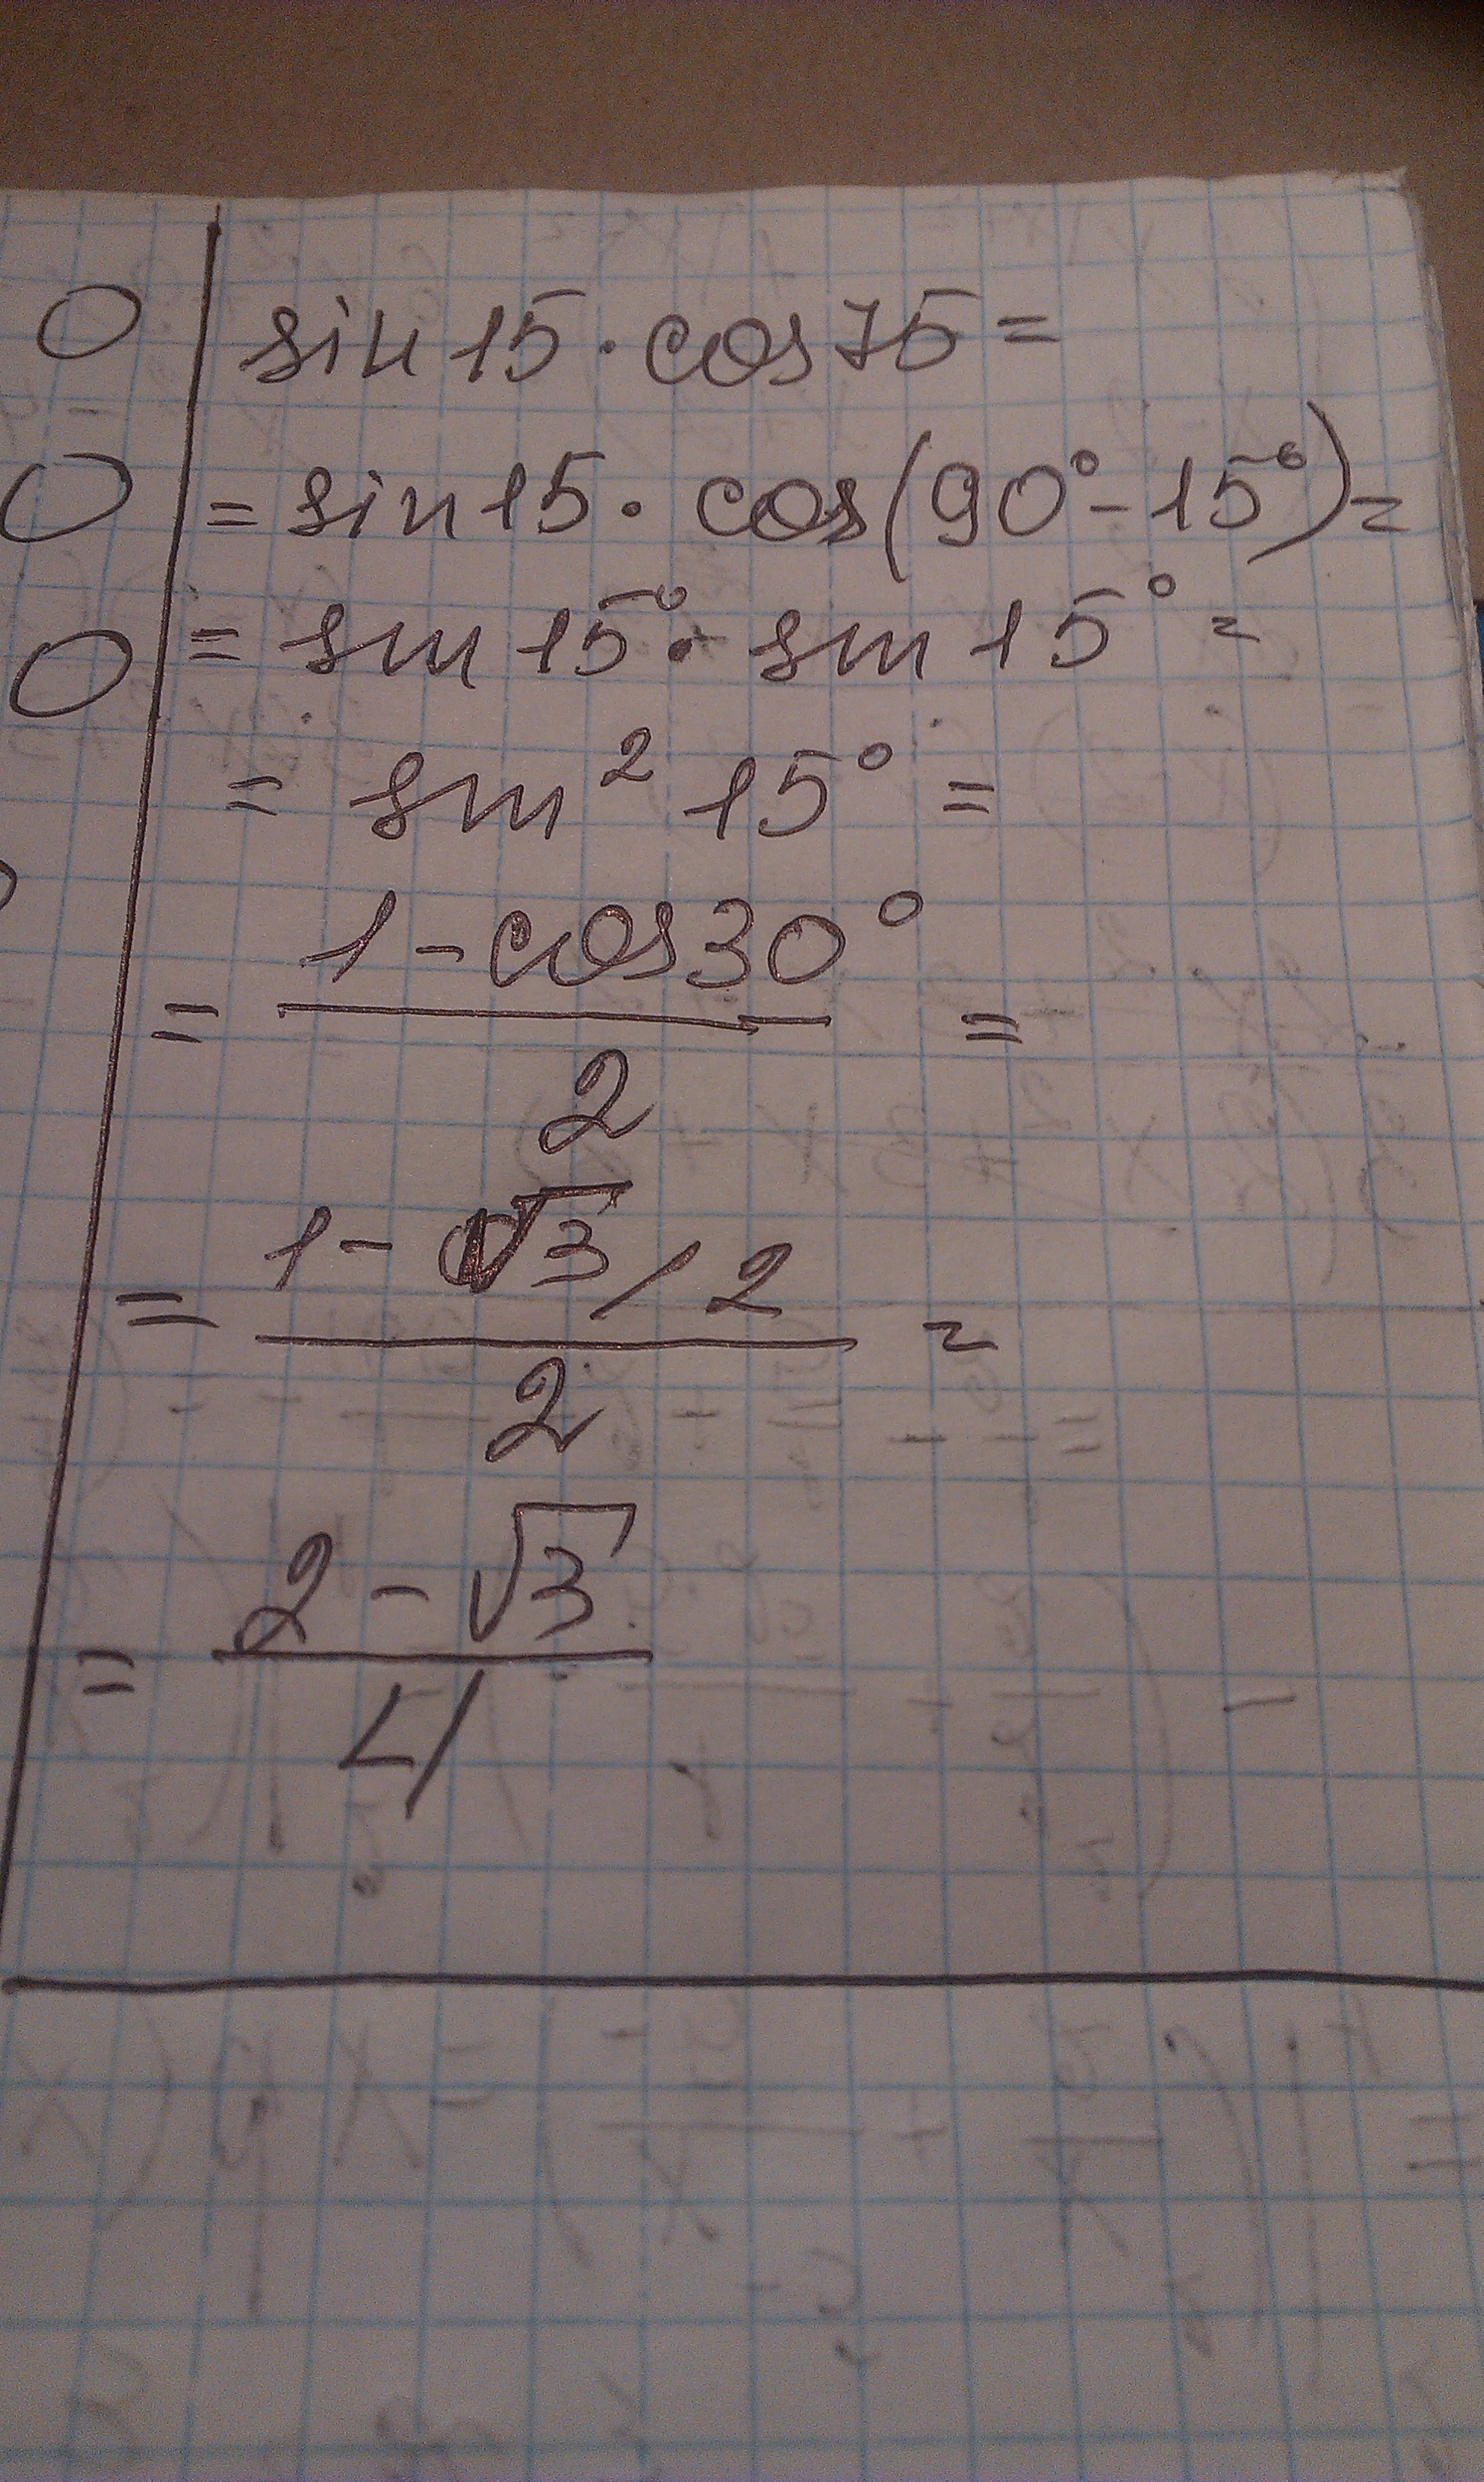 sin 15 · cos 75 =
= sin 15 · cos(90° - 15°) =
= sin 15° · sin 15° =
= sin² 15° =
= (1 - cos 30°) / 2 =
= (1 - √3 / 2) / 2 =
= (2 - √3) / 4